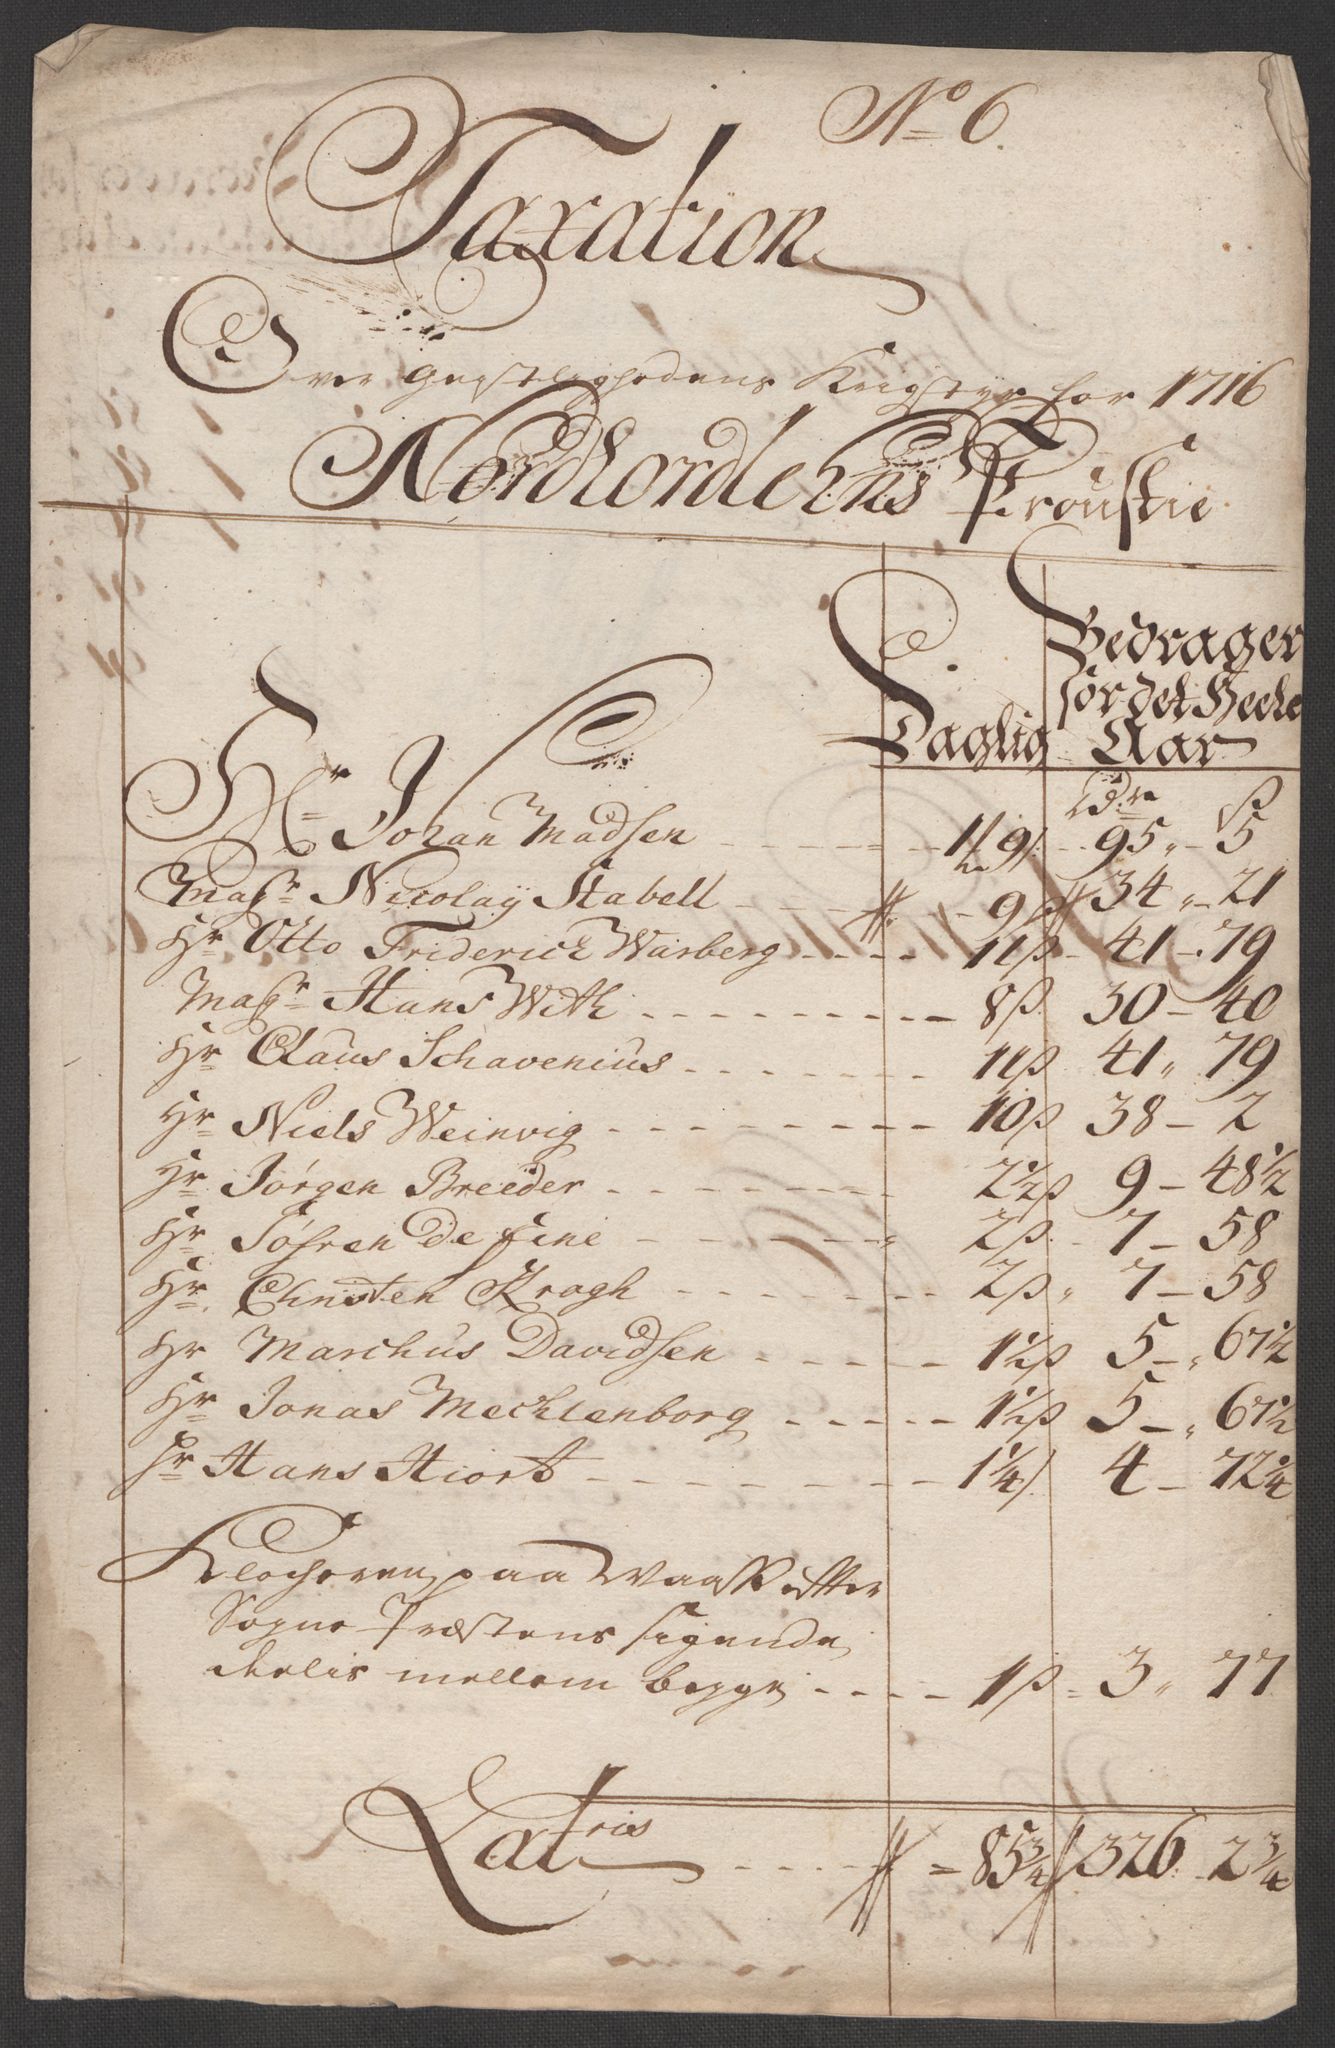 No 6.
Taxation
Over Geistlighedens Krigstyr for 1716
Nordhordlehns Proustie
Daglig
Bedrager
for det Heele
Aar
Hr Johan Madsen 95 5
Magr Nicolaÿ Stabell 9 ß 34 21
Hr Otto Friderich Warberg 11 ß 41 79
Magr Hans With 8 ß 30 40
Hr Claus Schavenius 11 ß 41 79
Hr Niels Weinvig 10 ß 38 2
Hr Jørgen Breeder 2½ ß 9 48½
Hr Søfren de fine 2 ß 7 58
Hr Christen Kragh 2 ß 7 58
Hr Marchus Davidsen 1½ ß 5 67½
Hr Jonas Mechlenborg 1½ ß 5 67½
Hr Hans Hiort 1¼ ß 4 72¼
Klocheren paa Waas effter
Sogne Præstens sigende
mellem begge 1 ß 3 77
Latris 85¾ 326 2¾